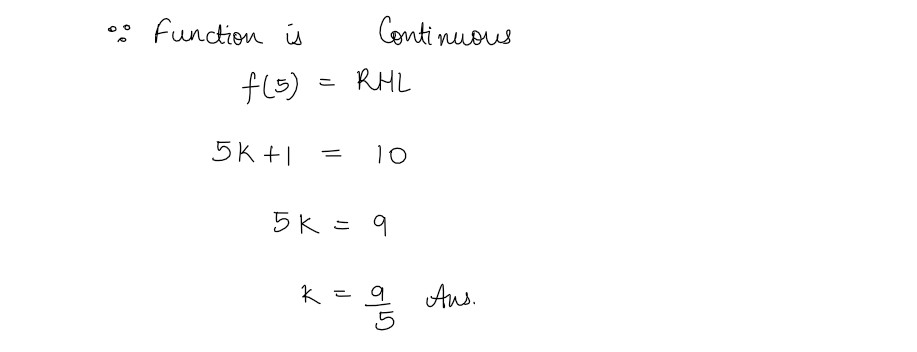 ∵ Function is Continuous
f(5) = RHL
5K + 1 = 10
5K = 9
K = 9/5 Ans.